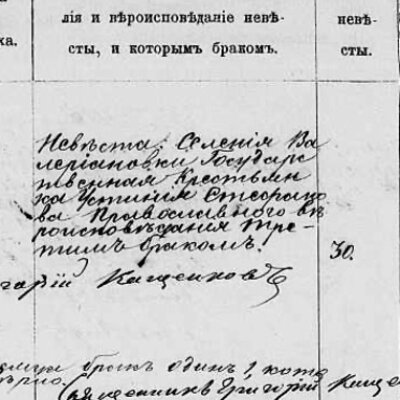 лія и вѣроисповѣданіе невѣ-
сты, и которымъ бракомъ.
невѣ-
сты.
ха.
Невѣста: Селенія Ва
леріановки Государс
твенная Крестьян
ка Устинія
ва Православнаго вѣ
роисповѣданія тре-
тимъ бракомъ.
30.
горій Кащенковъ
бракъ одинъ
Григорій Кащен